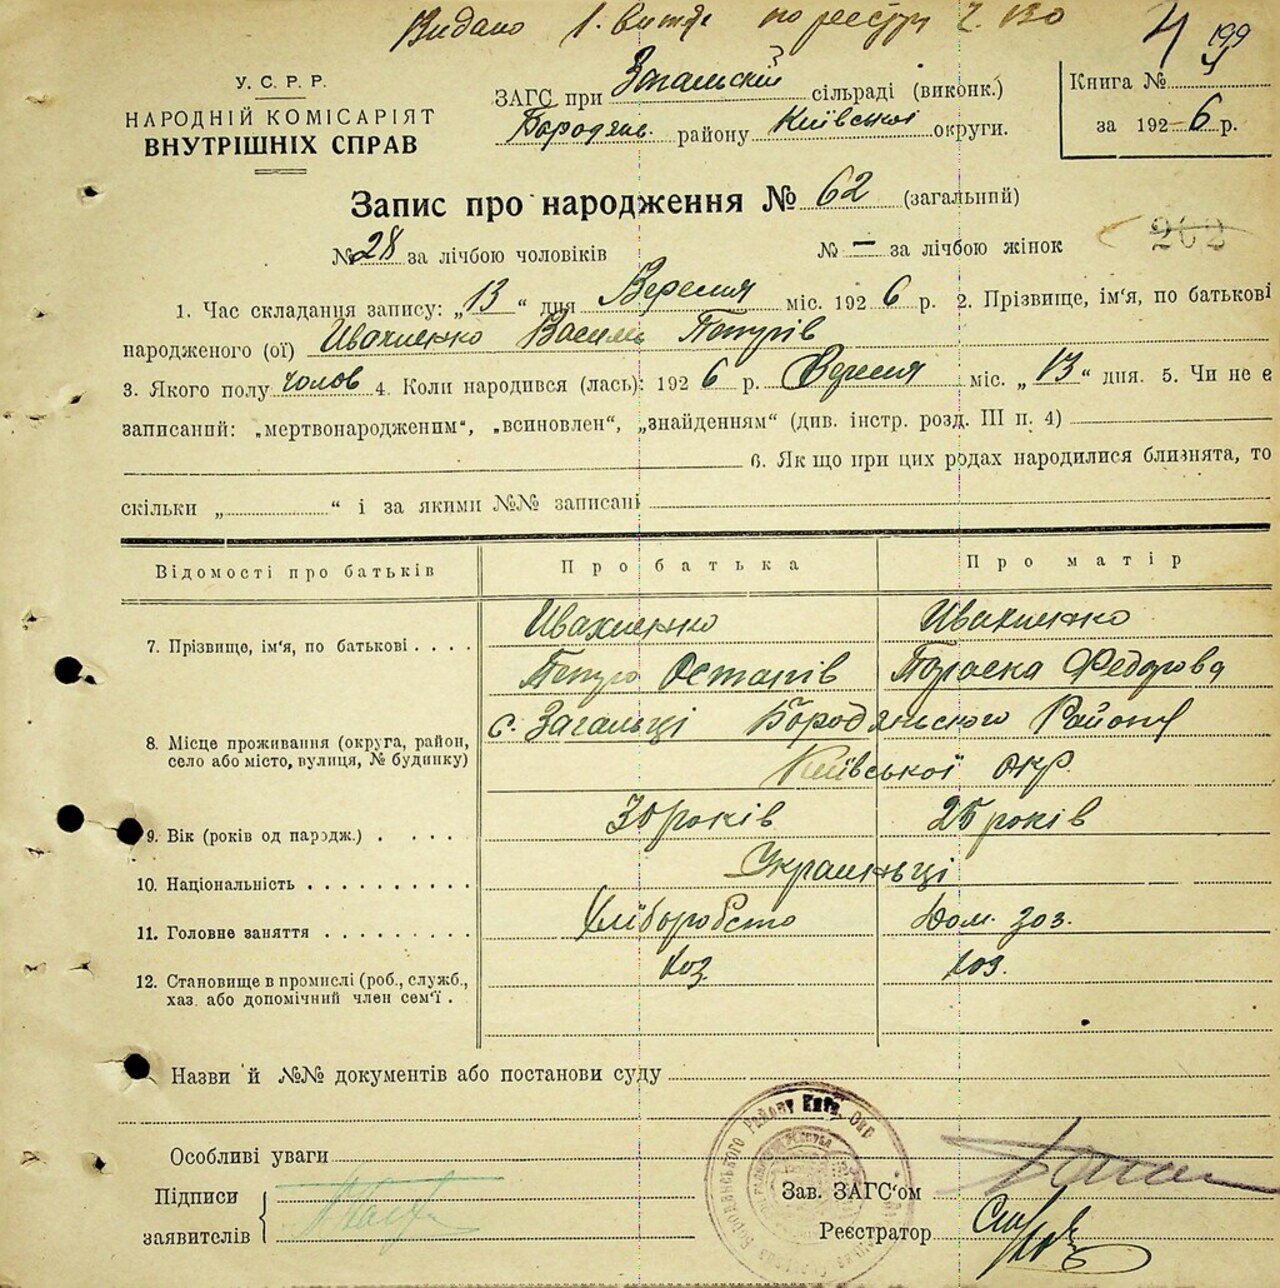 Видано 1. Витяг по реєстру Ч. 130
У. С. Р. Р.
НАРОДНІЙ КОМІСАРІЯТ
ВНУТРІШНІХ СПРАВ
ЗАГС при Загальській сільраді (виконк.)
Бородян. району Київської округи.
Книга №
за 1926 р.
Запис про народження № 62 (загальний)
№ 28 за лічбою чоловіків № — за лічбою жінок 202
1. Час складання запису: „13“ дня Вересня міс. 1926 р. 2. Прізвище, ім'я, по батькові
народженого (ої) Ивахненко Василь Петрів
3. Якого полу чолов 4. Коли народився (лась): 1926 р. Вересня міс. „13“ дня. 5. Чи не є
записаний: „мертвонародженим“, „всиновлен“, „знайденням“ (див. інстр. розд. III п. 4)
6. Якщо при цих родах народилися близнята, то
скільки „ “ і за якими №№ записані
Відомості про батьків Про батька Про матір
7. Прізвище, ім'я, по батькові Ивахненко Ивахненко
Петро Остапів Параска Федорова
8. Місце проживання (округа, район, село або місто, вулиця, № будинку) с. Загальці Бородяньского Району
Київської окр.
9. Вік (років од народж.) 30 років 25 років
10. Національність Украиньці
11. Головне заняття Хліборобсто Дом. хоз.
12. Становище в промислі (роб., служб., хаз. або допомічний член сем'ї. хоз. хоз.
Назви й №№ документів або постанови суду
Особливі уваги
Підписи
заявителів
Зав. ЗАГС'ом
Реєстратор